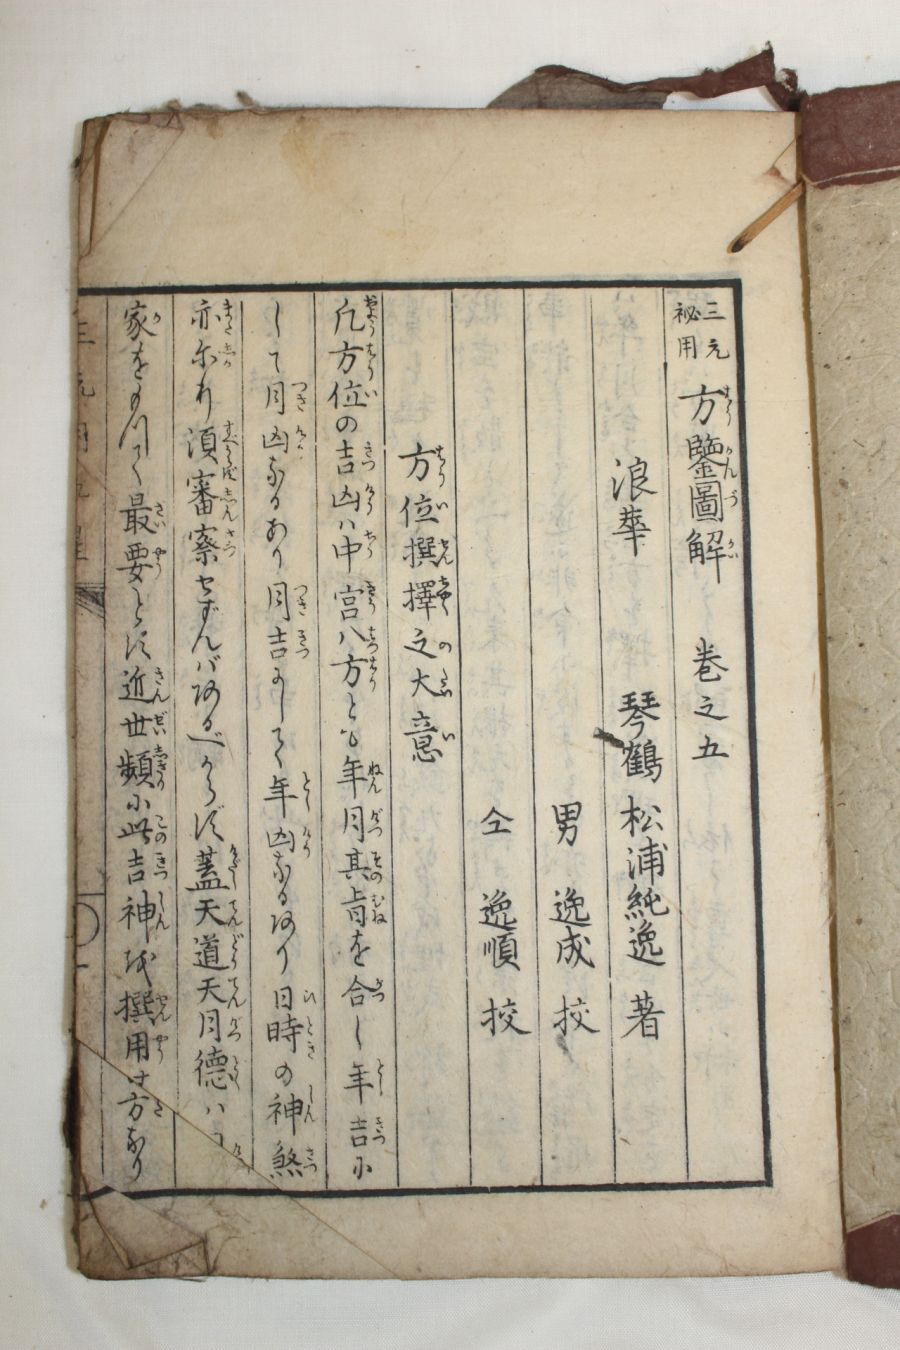 三元
祕用
方鑒圖解 卷之五
浪華 琴鶴 松浦純逸 著
男 逸成 挍
仝 逸順 挍
方位撰擇之大意
凡方位の吉凶ハ中宮八方とも年月其旨を合し年吉に
して月凶なるあり月吉にして年凶なるあり日時の神煞
亦尓り須審察せずんバあるべからず蓋天道天月德ハ
家をのつく最要とす近世頻小此吉神を撰用ひ方あり